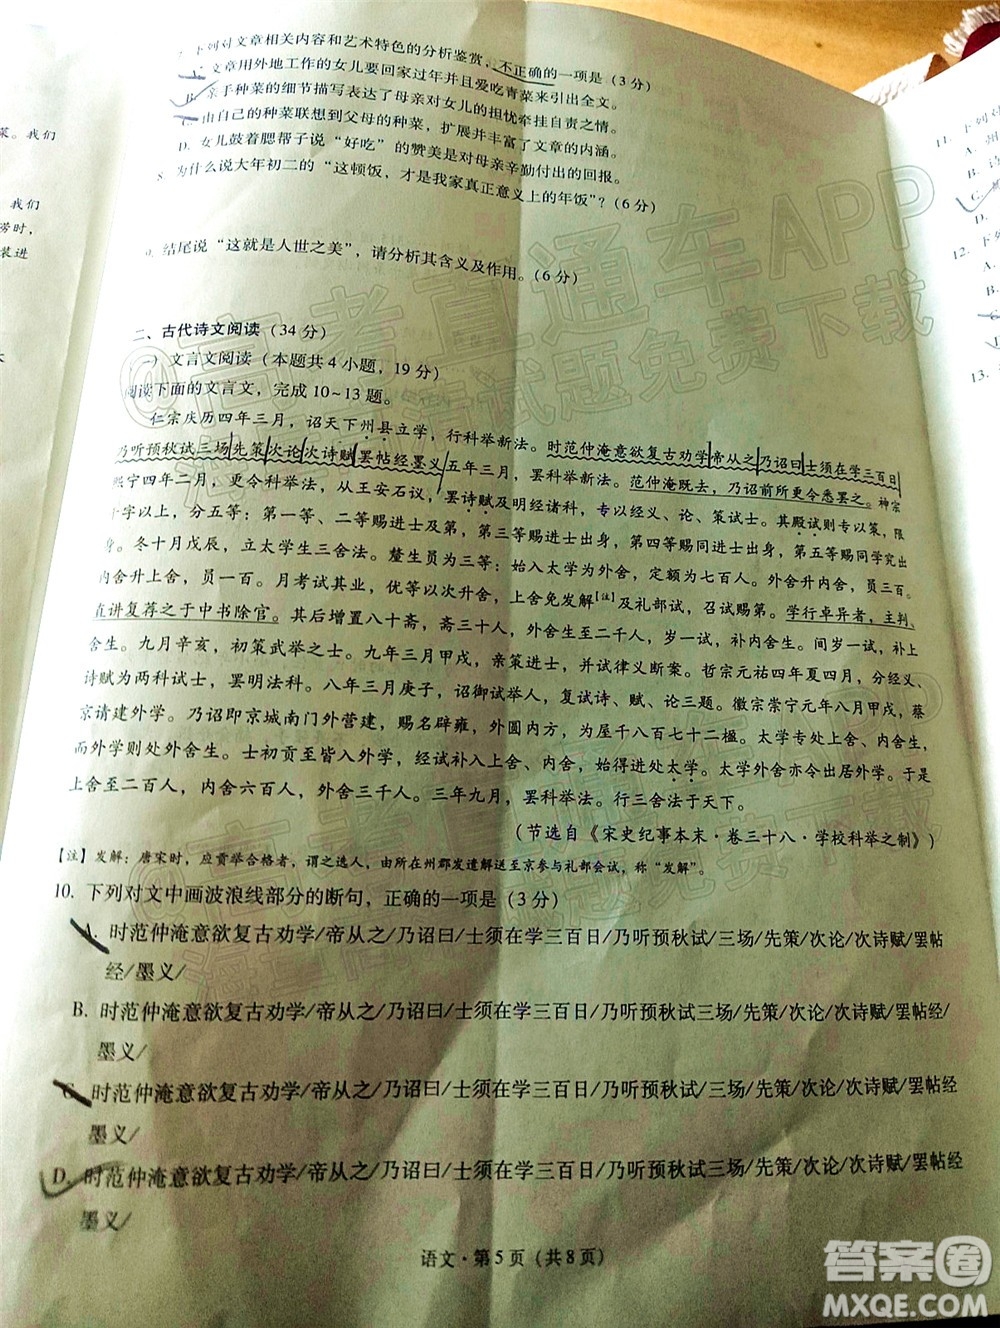 7. 下列对文章相关内容和艺术特色的分析鉴赏，不正确的一项是（3分）
文章用外地工作的女儿要回家过年并且爱吃青菜来引出全文。
B. 亲手种菜的细节描写表达了母亲对女儿的担忧牵挂自责之情。
由自己的种菜联想到父母的种菜，扩展并丰富了文章的内涵。
D. 女儿鼓着腮帮子说“好吃”的赞美是对母亲辛勤付出的回报。
8. 为什么说大年初二的“这顿饭，才是我家真正意义上的年饭”？（6分）
9. 结尾说“这就是人世之美”，请分析其含义及作用。（6分）
二、古代诗文阅读（34分）
）文言文阅读（本题共4小题，19分）
阅读下面的文言文，完成10~13题。
仁宗庆历四年三月，诏天下州县立学，行科举新法。时范仲淹意欲复古劝学帝从之乃诏曰士须在学三百日
乃听预秋试三场先策次论次诗赋罢帖经墨义五年三月，罢科举新法。范仲淹既去，乃诏前所更令悉罢之。神宗
熙宁四年二月，更令科举法，从王安石议，罢诗赋及明经诸科，专以经义、论、策试士。其殿试则专以策，限
千字以上，分五等：第一等、二等赐进士及第，第三等赐进士出身，第四等赐同进士出身，第五等赐同学究出
身。冬十月戊辰，立太学生三舍法。釐生员为三等：始入太学为外舍，定额为七百人。外舍升内舍，员二百。
内舍升上舍，员一百。月考试其业，优等以次升舍，上舍免发解[注]及礼部试，召试赐第。学行卓异者，主判、
直讲复荐之于中书除官。其后增置八十斋，斋三十人，外舍生至二千人，岁一试，补内舍生。间岁一试，补上
舍生。九月辛亥，初策武举之士。九年三月甲戌，亲策进士，并试律义断案。哲宗元祐四年夏四月，分经义、
诗赋为两科试士，罢明法科。八年三月庚子，诏御试举人，复试诗、赋、论三题。徽宗崇宁元年八月甲戌，蔡
京请建外学。乃诏即京城南门外营建，赐名辟雍，外圆内方，为屋千八百七十二楹。太学专处上舍、内舍生，
而外学则处外舍生。士初贡至皆入外学，经试补入上舍、内舍，始得进处太学。太学外舍亦令出居外学。于是
上舍至二百人，内舍六百人，外舍三千人。三年九月，罢科举法。行三舍法于天下。
（节选自《宋史纪事本末·卷三十八·学校科举之制》）
【注】发解：唐宋时，应贡举合格者，谓之选人，由所在州郡发遣解送至京参与礼部会试，称“发解”。
10. 下列对文中画波浪线部分的断句，正确的一项是（3分）
A. 时范仲淹意欲复古劝学/帝从之/乃诏曰/士须在学三百日/乃听预秋试/三场/先策/次论/次诗赋/罢帖
经/墨义/
B. 时范仲淹意欲复古劝学/帝从之/乃诏曰/士须在学三百日/乃听预秋试三场/先策/次论/次诗赋/罢帖经/
墨义/
C. 时范仲淹意欲复古劝学/帝从之/乃诏曰/士须在学三百日/乃听预秋试/三场/先策/次论/次诗赋/罢帖经
墨义/
D. 时范仲淹意欲复古劝学/帝从之/乃诏曰/士须在学三百日/乃听预秋试三场/先策/次论/次诗赋/罢帖经
墨义/
语文·第5页（共8页）
菜。我们
我们
涝时，
装进
11. 下列
A. 州
C.
12. 下列
A.
B.
13.
@高考直通车APP
海量试题免费下载
@高考直通车APP
海量试题免费下载
答案圈
MXQE.COM